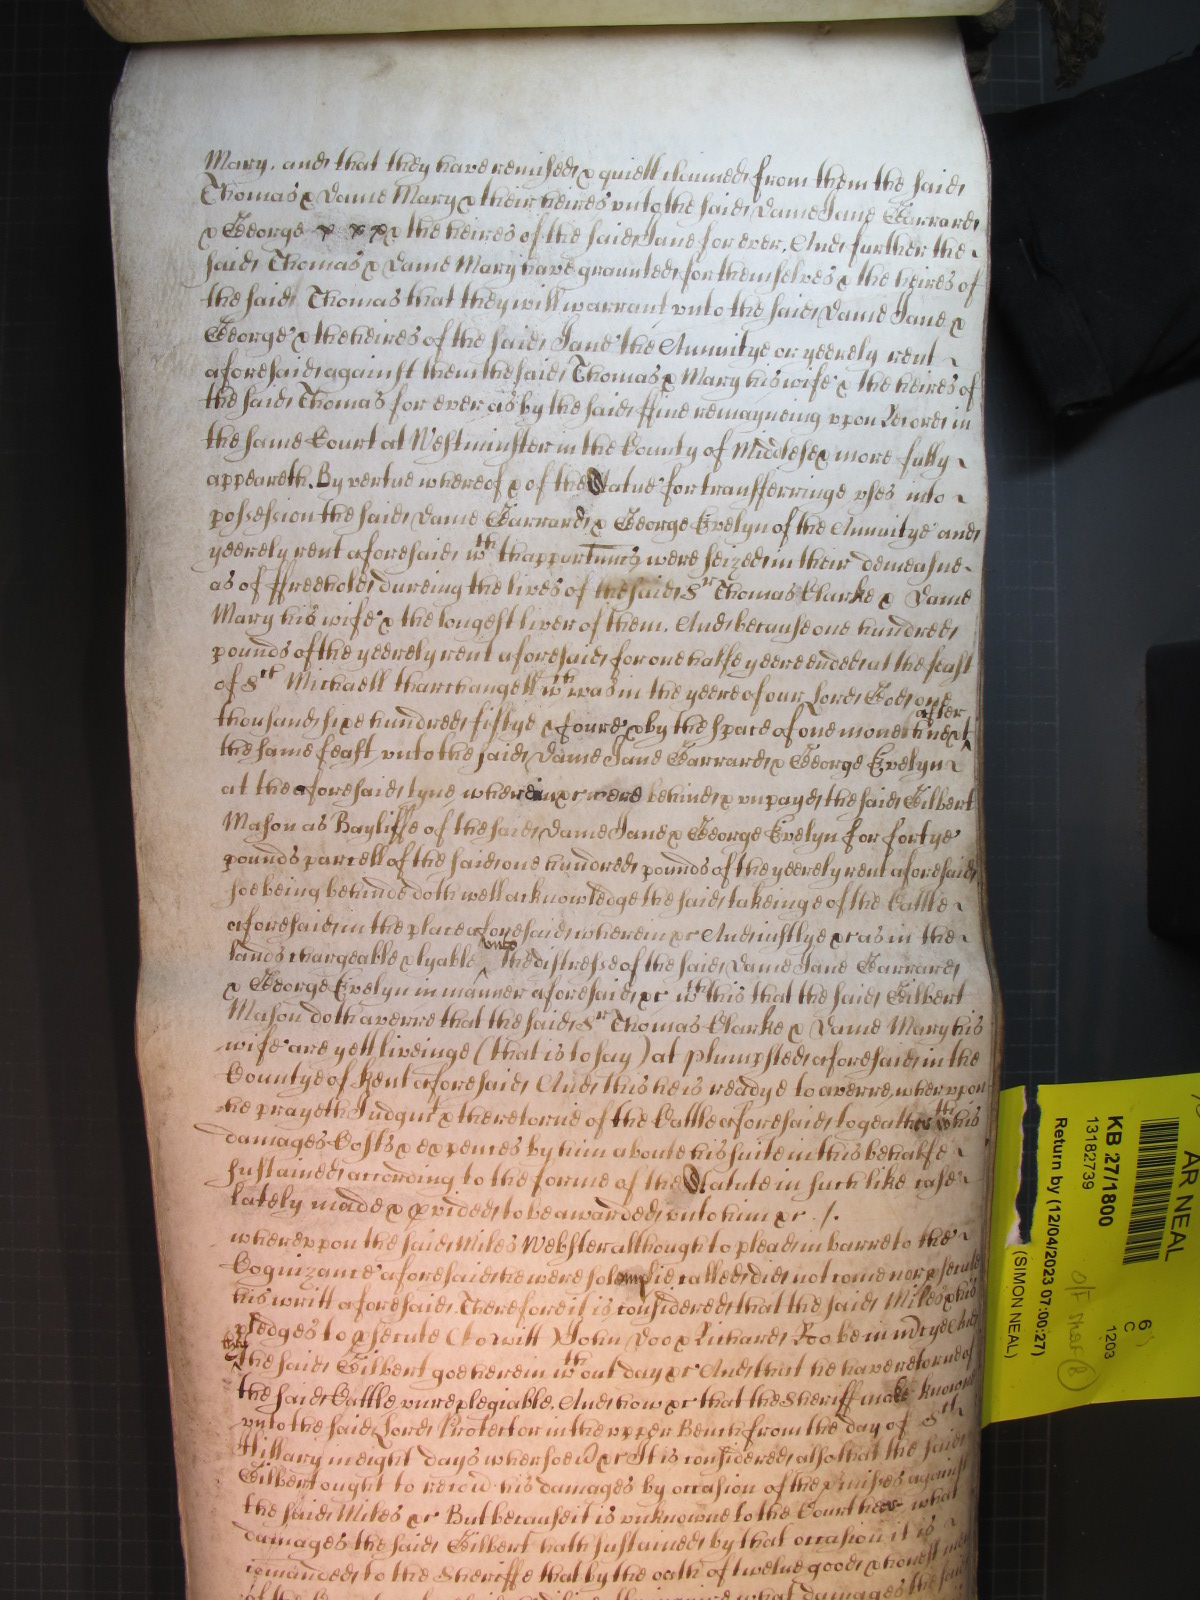 Mary, and that they have remised & quiett claimed from them the said
Thomas & Dame Mary & their heires vnto the said Dame Jane Garrard
& George & the heires of the said Jane for ever. And further the
said Thomas & Dame Mary have graunted for themselves & the heires of
the said Thomas that they will warrant vnto the said Dame Jane &
George & the heires of the said Jane the Annuitye or yeerely rent
aforesaid against them the said Thomas & Mary his wife & the heires of
the said Thomas for ever as by the said ffine remayneing vpon Record in
the same Court at Westminster in the County of Middlesex more fully
appeareth. By vertue whereof & of the Statute for transferringe vses into
possession the said Dame Garrard & George Evelyn of the Annuitye and
yeerely rent aforesaid wth thappurtnncs were seized in their demeasne
as of ffreehold dureing the lives of the said Sr Thomas Clarke & Dame
Mary his wife & the longest liver of them. And because one hundred
pounds of the yeerely rent aforesaid for one halfe yeere ended at the feast
of St Michaell tharchangell wch was in the yeere of our Lord God one
thousand sixe hundred fiftye & foure & by the space of one moneth next after
the same feast vnto the said Dame Jane Garrard & George Evelyn
at the aforesaid tyme wherein &c were behind & vnpayd the said Gilbert
Mason as Bayliffe of the said Dame Jane & George Evelyn for fortye
pounds parcell of the said one hundred pounds of the yeerely rent aforesaid
soe being behinde doth well acknowledge the said takeinge of the Cattle
aforesaid in the place aforesaid wherein &c And iustlye &c as in the
lands chargeable & lyable vnto the distresse of the said Dame Jane Garrard
& George Evelyn in manner aforesaid &c wth this that the said Gilbert
Mason doth averre that the said Sr Thomas Clarke & Dame Mary his
wife are yett liveinge (that is to say) at Plumpsted aforesaid in the
Countye of Kent aforesaid And this he is readye to averre, whervpon
he prayeth Iudgmt & the retorne of the Cattle aforesaid togeather wth his
damages Costs & expences by him about his suite in this behalfe
sustained according to the forme of the Statute in such like case
lately made & pvided to be awarded vnto him &c ./.
wherevpon the said Miles Webster although to plead in barre to the
Cognizance aforesaid he were solemplie called did not come nor psecute
his writt aforesaid. Therefore it is considered that the said Miles & his
pledges to psecute (to witt) John Doo & Richard Roo be in mcye And
the said Gilbert goe therein wthout day &c And that he have retorne of
the said Cattle vnreplegiable. And how &c that the Sheriff make knowne
vnto the said Lord Protector in the vpper Bench from the day of St
Hillary in eight days wheresoever &c It is considered also that the said
Gilbert ought to recover his damages by occasion of the pmisses against
the said Miles &c But because it is vnknowne to the Court heer what
damages the said Gilbert hath sustained by that occasion it is
comanded to the Sheriffe that by the oath of twelve good & honest men
what damages the said